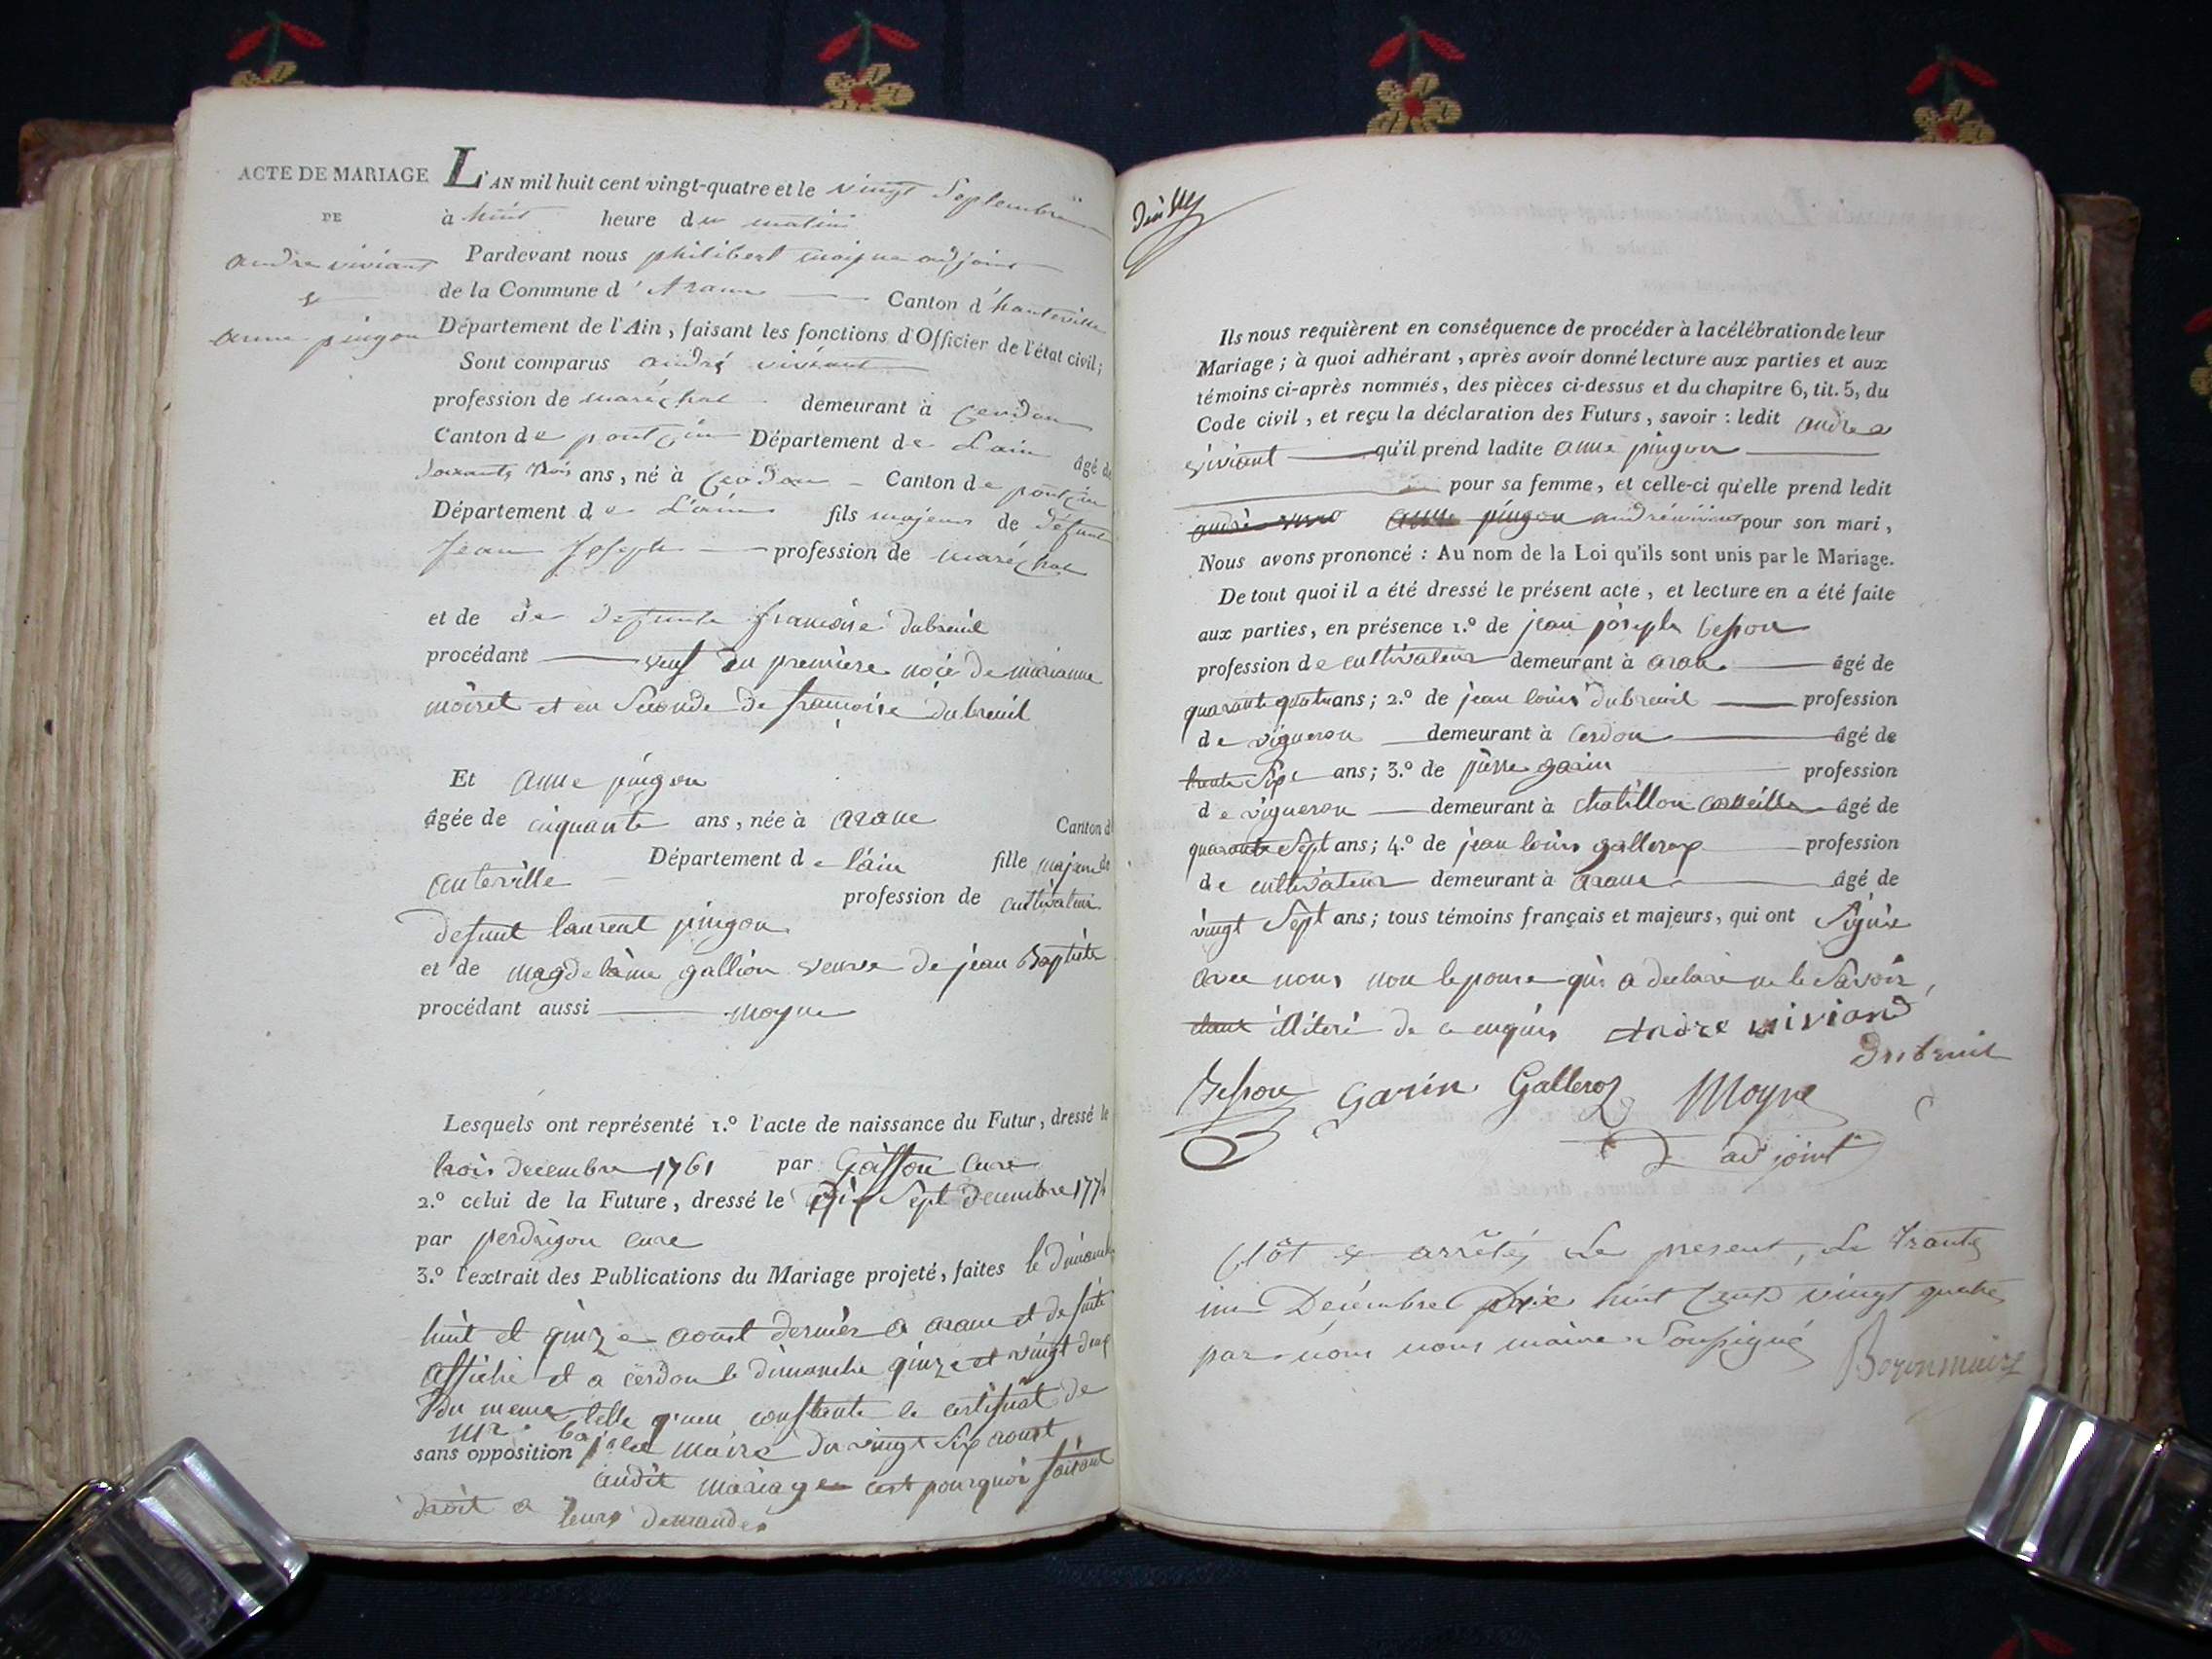 ACTE DE MARIAGE
DE
andre viviant
&
anne pingon
L'AN mil huit cent vingt-quatre et le vingt Septembre
à huit heure du matin
Pardevant nous philibert moyne adjoint
de la Commune d'Aranc Canton d'hauteville
Département de l'Ain, faisant les fonctions d'Officier de l'état civil;
Sont comparus andré viviant
profession de maréchal demeurant à Cerdon
Canton de pontcin Département de L'ain âgé de
Soixante trois ans, né à Cerdon Canton de pontcin
Département de L'ain fils majeur de défunt
Jean Joseph profession de maréchal
et de de defunte francoise dubreuil
procédant veuf en première noce de marianne
moiret et en Seconde de francoise dubreuil
Et anne pingon
âgée de cinquante ans, née à aranc Canton d
auteville Département de l'ain fille majeure de
defunt laurent pingon profession de cultivateur
et de magdelaine gallion veuve de jean Baptiste
procédant aussi moyne
Lesquels ont représenté 1.° l'acte de naissance du Futur, dressé le
trois decembre 1761 par Gasson Cure
2.° celui de la Future, dressé le dix Sept decembre 177
par perdrigon cure
3.° l'extrait des Publications du Mariage projeté, faites le dimanche
huit et quinze aoust dernier a aranc et de suite
affiché et a cerdon le dimanche quinze et vingt deux
du meme telle qu'en constante le certificat de
mr. le maire du vingt Six aoust
sans opposition audit mariage cest pourquoi faisant
droit a leurs demandes
Ils nous requièrent en conséquence de procéder à la célébration de leur
Mariage; à quoi adhérant, après avoir donné lecture aux parties et aux
témoins ci-après nommés, des pièces ci-dessus et du chapitre 6, tit. 5, du
Code civil, et reçu la déclaration des Futurs, savoir: ledit andre
viviant qu'il prend ladite anne pingon
pour sa femme, et celle-ci qu'elle prend ledit
anne pingon andré viviant pour son mari,
Nous avons prononcé: Au nom de la Loi qu'ils sont unis par le Mariage.
De tout quoi il a été dressé le présent acte, et lecture en a été faite
aux parties, en présence 1.° de jean joseph besson
profession de cultivateur demeurant à aranc âgé de
quarante quatre ans; 2.° de jean louis dubreuil profession
de vigneron demeurant à Cerdon âgé de
trente Six ans; 3.° de pierre garin profession
de vigneron demeurant à chatillon corneille âgé de
quarante Sept ans; 4.° de jean louis galleroz profession
de cultivateur demeurant à aranc âgé de
vingt Sept ans; tous témoins français et majeurs, qui ont Signé
avec nous non lepouse qui a declaré ne le Savoir,
étant illiteré de ce enquis andre viviand
Dubreuil
Besson Garin Galleroz Moyne
adjoint
Clôt & arrêté Le present, Le trante
un Decembre Dix huit Cent vingt quatre
par nous maire Soussigné